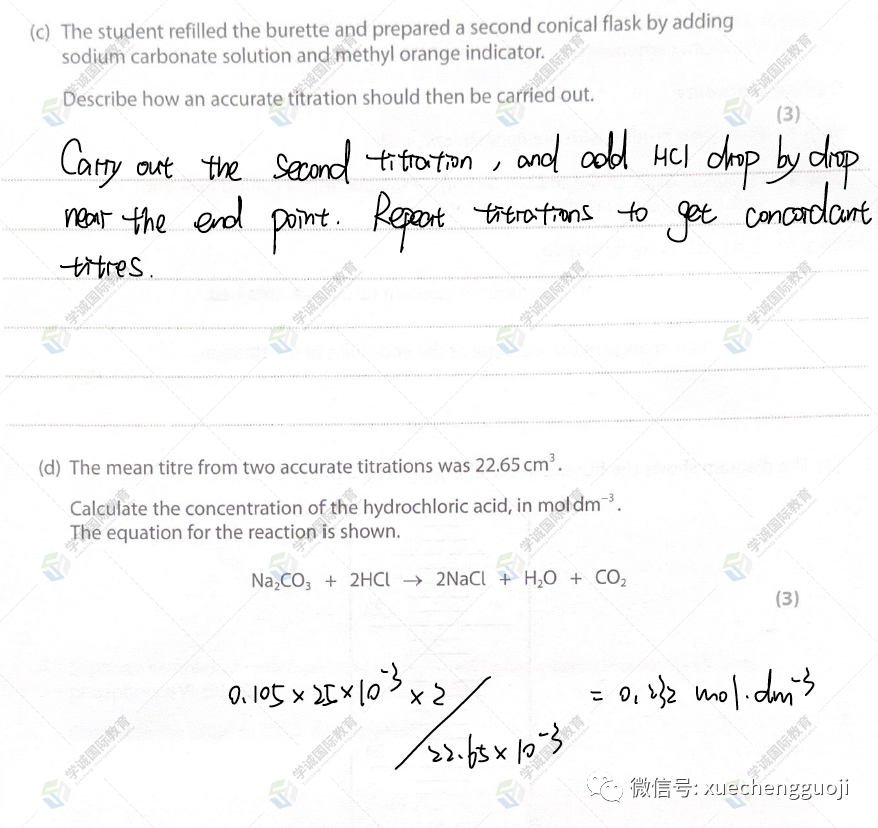 (c) The student refilled the burette and prepared a second conical flask by adding
sodium carbonate solution and methyl orange indicator.
Describe how an accurate titration should then be carried out.
(3)
Carry out the second titration, and add HCl drop by drop
near the end point. Repeat titrations to get concordant
titres.
(d) The mean titre from two accurate titrations was 22.65 cm³.
Calculate the concentration of the hydrochloric acid, in mol dm⁻³.
The equation for the reaction is shown.
Na₂CO₃ + 2HCl → 2NaCl + H₂O + CO₂
(3)
0.105 × 25 × 10⁻³ × 2 / 22.65 × 10⁻³ = 0.232 mol.dm⁻³
学诚国际教育
微信号: xuechengguoji